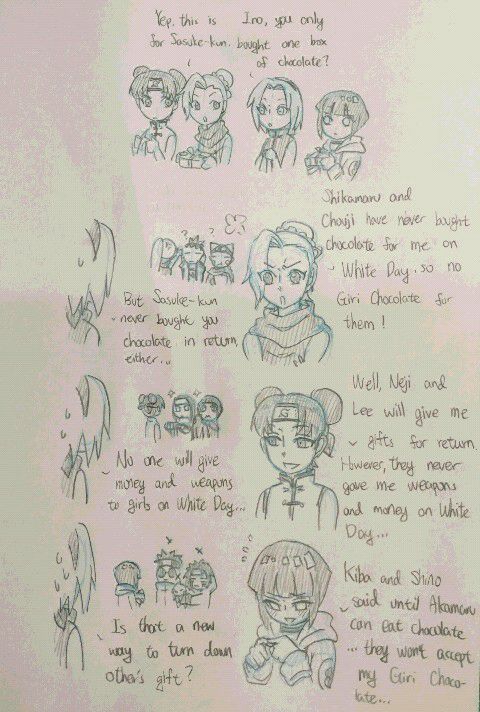 Yep, this is
for Sasuke-kun.
Ino, you only
bought one box
of chocolate?
Shikamaru and
Chouji have never bought
chocolate for me on
White Day. so no
Giri Chocolate for
them!
But Sasuke-kun
never bought you
chocolate in return
either...
Well, Neji and
Lee will give me
gifts for return.
However, they never
gave me weapons
and money on White
Day...
No one will give
money and weapons
to girls on White Day...
Kiba and Shino
said until Akamaru
can eat chocolate
... they won't accept
my Giri Choco-
late...
Is that a new
way to turn down
other's gift?